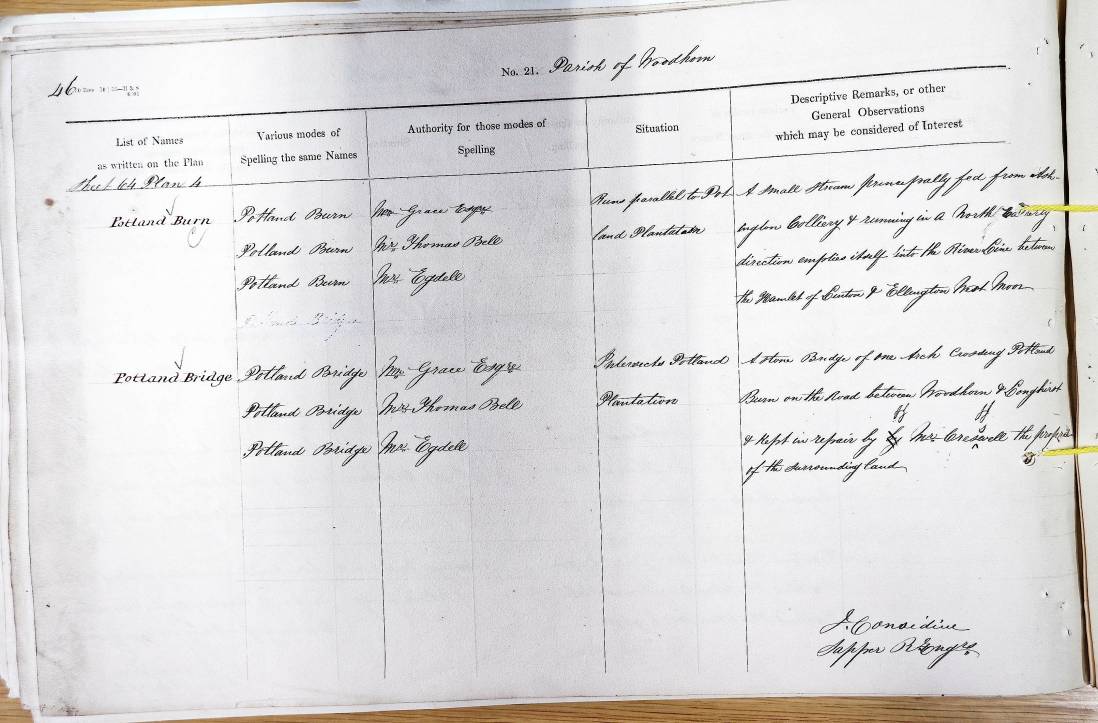 46
No. 21. Parish of Woodhorn
List of Names
as written on the Plan
Various modes of
Spelling the same Names
Authority for those modes of
Spelling
Situation
Descriptive Remarks, or other
General Observations
which may be considered of Interest
Sheet 64 Plan 4
Potland Burn
Potland Burn
Potland Burn
Potland Burn
Mr. Grace Esqre
Mr. Thomas Bell
Mr. Egdell
Runs parallel to Pot
land Plantation
A small stream principally fed from Ash-
ington Colliery & running in a North Easterly
direction empties itself into the River Line between
the Hamlet of Linton & Ellington West Moor
Potland Bridge
Potland Bridge
Potland Bridge
Potland Bridge
Mr. Grace Esqre
Mr. Thomas Bell
Mr. Egdell
Intersects Potland
Plantation
A stone Bridge of one Arch Crossing Potland
Burn on the Road between Woodhorn & Longhirst
& Kept in repair by Mr. Cresswell the
of the surrounding land
J. Considine
Sapper R Engrs